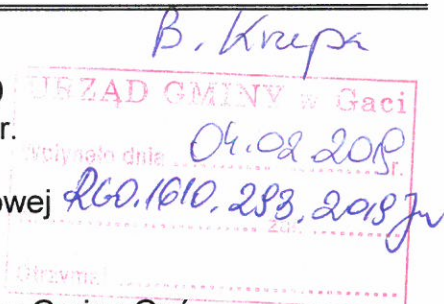 B. Krzepa
URZĄD GMINY w Gaci
r.
Wpłynęło dnia 04.02.2019 r.
owej RGO.1610.293.2019 Jw
zał.
Otrzymał